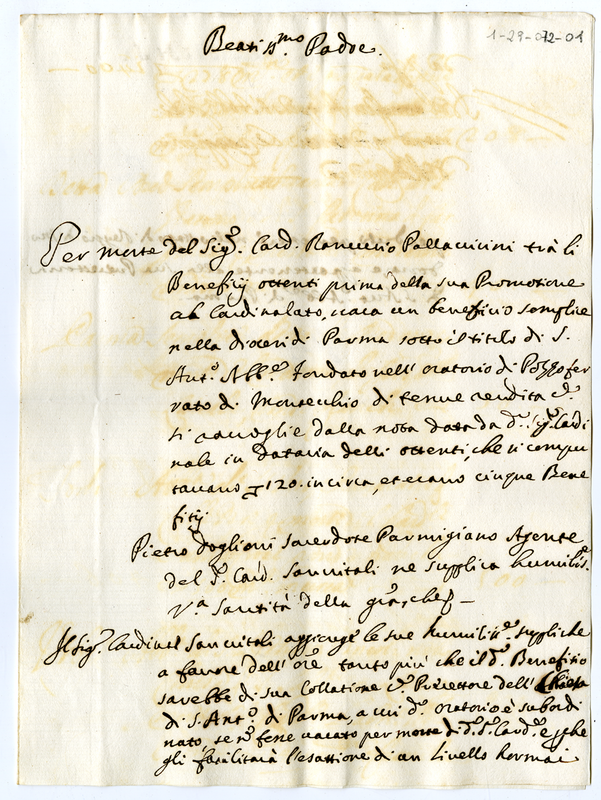 1-29-072-01
Beatiss.mo Padre.
Per morte del Sig.r Card. Ranuccio Pallavicini trà li
Beneficij ottenti prima della sua Promotione
al Cardinalato, vaca un beneficio semplice
nella diocesi di Parma sotto il titolo di S.
Ant.o Abb.e fondato nell' oratorio di Pozzo fer
rato di Montecchio di tenue rendita
si raccoglie dalla nota data da d.o Sig.r Cardi
nale in Dataria delli ottenti, che si compu
tavano 120. in circa, et erano cinque Bene
fitij.
Pietro Doglioni sacerdote Parmigiano Agente
del S.r Card. Sanvitali ne supplica humiliss.e
V.a Santità della gra, che
Il Sig.r Cardinal Sanvitali aggiunge le sue humiliss.e suppliche
a favore dell' ore tanto più che il d.o Benefitio
sarebbe di sua Collatione Protettore dell' Chiesa
di S. Ant.o di Parma, a cui d.o oratorio è subordi
nato, se n̄ fene vacato per morte di d.o S.r Card.e
gli facilitarà l'esattione di un livello hormai